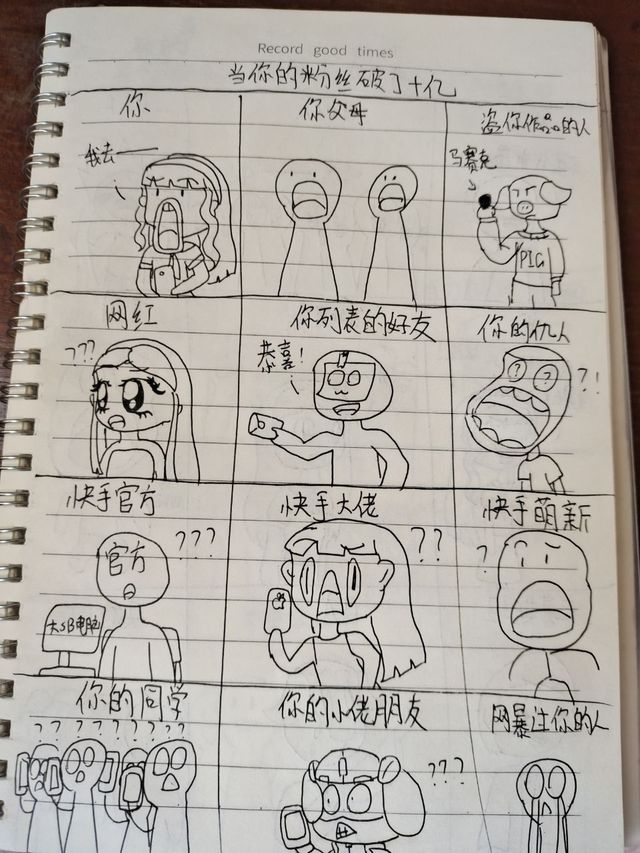 Record good times
当你的粉丝破了十亿
你
你父母
盗你作品的人
我去——
马赛克
PIG
网红
你列表的好友
你的仇人
???
恭喜!
? ?
?!
快手官方
快手大佬
快手萌新
官方
???
??
? ? ?
大SB电脑
你的同学
你的小佬朋友
网暴过你的人
? ? ? ? ? ? ? ?
???